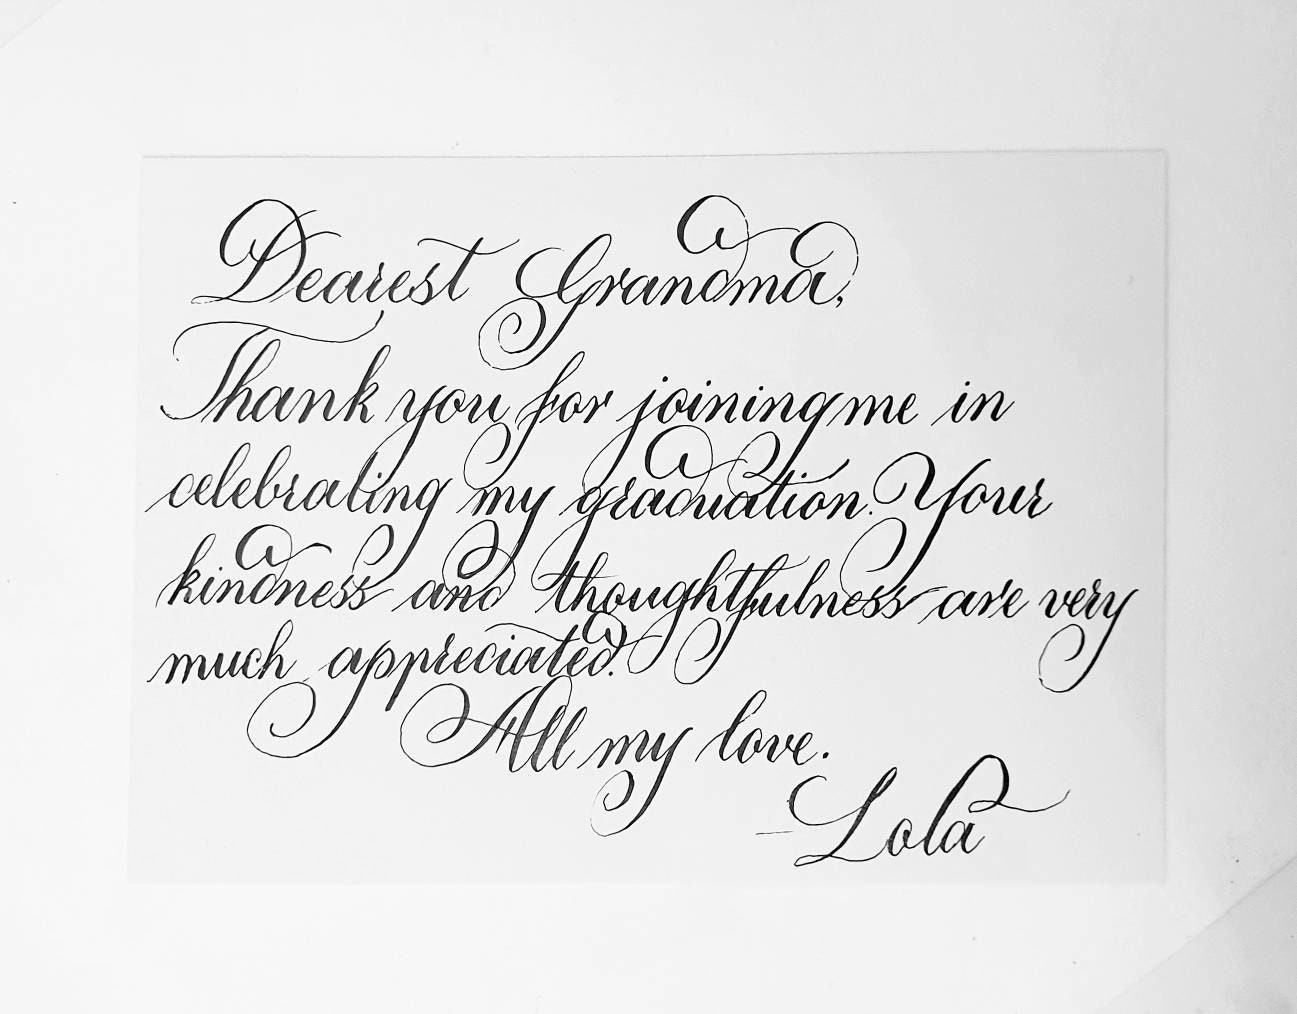 Dearest Grandma,
Thank you for joining me in
celebrating my graduation. Your
kindness and thoughtfulness are very
much appreciated.
All my love.
- Lola